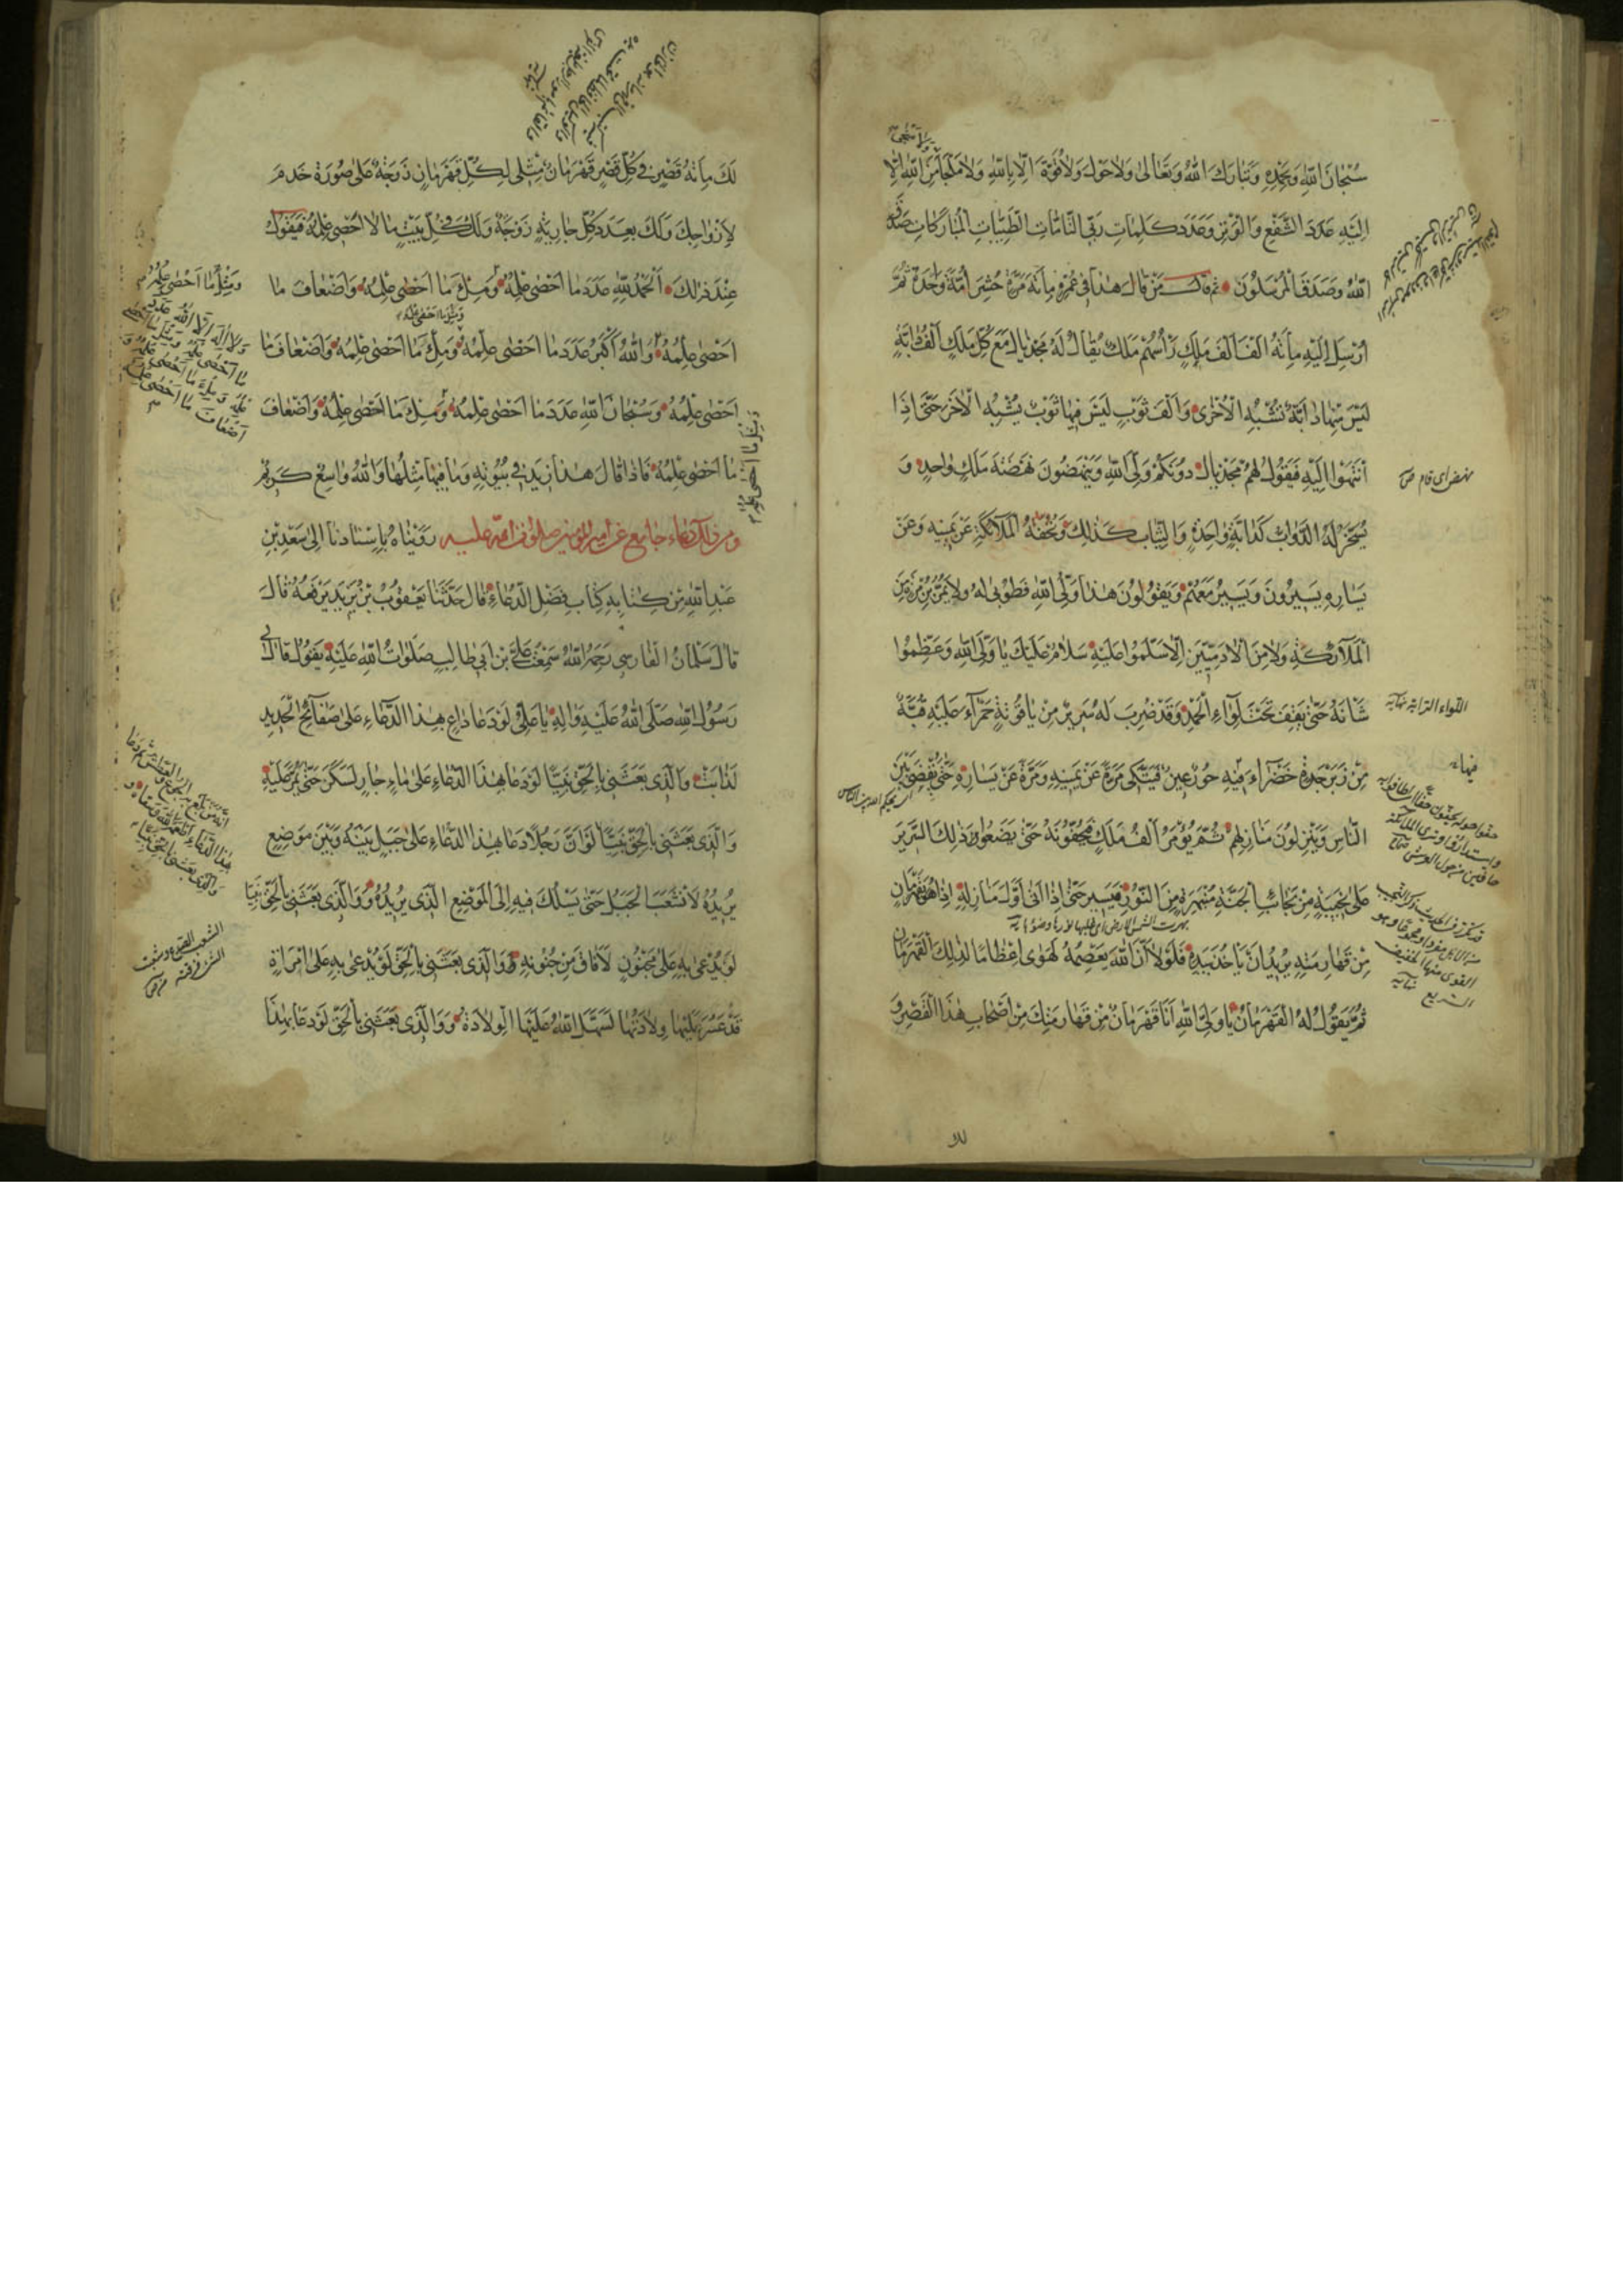 سُبْحَانَ اللّٰهِ وَبِحَمْدِهِ وَتَبَارَكَ اللّٰهُ وَتَعَالىٰ وَلاٰحَوْلَ وَلاٰقُوَّةَ اِلّاٰ بِاللّٰهِ وَلاٰ مَلْجَأَ مِنَ اللّٰهِ اِلّاٰ
وَلاٰ مَنْجىٰ
اِلَيْهِ عَدَدَ الشَّفْعِ وَالْوَتْرِ وَعَدَدَ كَلِمَاتِ رَبّى التَّامَّاتِ الطَّيِّبَاتِ الْمُبَارَكَاتِ صَدَقَ
اللّٰهُ وَصَدَقَ الْمُرْسَلُونَ ثم قال مَنْ قَالَ هٰذَا فى عُمْرِهِ مِائَةَ مَرَّةٍ حُشِرَ اُمَّةً وَاحِدَةً ثُمَّ
اُرْسِلَ اِلَيْهِ مِائَةُ اَلْفِ اَلْفِ مَلَكٍ رَأْسُهُمْ مَلَكٌ يُقَالُ لَهُ مَجْدِيَالُ مَعَ كُلِّ مَلَكٍ اَلْفُ دَابَّةٍ
لَيْسَ مِنْهَا دَابَّةٌ تُشْبِهُ الْاُخْرىٰ وَاَلْفُ ثَوْبٍ لَيْسَ فِيهَا ثَوْبٌ يُشْبِهُ الْاٰخَرَ حَتّىٰ اِذَا
اَنْتَهَوْا اِلَيْهِ فَيَقُولُ لَهُمْ مَجْدِيَالُ دُونَكُمْ وَلِىَّ اللّٰهِ وَيَنْهَضُونَ نَهْضَةَ مَلَكٍ وَاحِدٍ وَ
نهض اى قام ص
يُسَخَّرُ لَهُ الدَّوَابُّ كَدَابَّةٍ وَاحِدَةٍ وَالثِّيَابُ كَذٰلِكَ وَتَحُفُّهُ الْمَلاٰئِكَةُ عَنْ يَمِينِهِ وَعَنْ
يَسَارِهِ يَسِيرُونَ وَيَسِيرُ مَعَهُمْ وَيَقُولُونَ هٰذَا وَلِىُّ اللّٰهِ فَطُوبىٰ لَهُ وَلاٰ يَمُرُّ بِزُمْرَةٍ مِنَ
الْمَلاٰئِكَةِ وَلاٰ مِنَ الْاٰدَمِيّينَ اِلّاٰ سَلَّمُوا عَلَيْهِ سَلاٰمٌ عَلَيْكَ يَا وَلِىَّ اللّٰهِ وَعَظَّمُوا
شَانَهُ حَتّىٰ يَقِفَ تَحْتَ لِوَاءِ الْحَمْدِ وَقَدْ ضُرِبَ لَهُ سَرِيرٌ مِنْ يَاقُوتَةٍ حَمْرَاءَ عَلَيْهِ قُبَّةٌ
اللواء الراية نهاية
مِنْ زَبَرْجَدَةٍ خَضْرَاءَ فِيهِ حُورٌ عِينٌ فَيَتَّكى مَرَّةً عَنْ يَمِينِهِ وَمَرَّةً عَنْ يَسَارِهِ حَتّىٰ يُقْضىٰ بَيْنَ
اى يحكم الله بين الناس
النَّاسِ وَيَنْزِلُونَ مَنَازِلَهُمْ ثُمَّ يُؤْمَرُ اَلْفُ مَلَكٍ فَيَحُفُّونَهُ حَتّىٰ يَضَعُوا ذٰلِكَ السَّرِيرَ
عَلىٰ نَجِيبَةٍ مِنْ نَجَائِبِ الْجَنَّةِ مُنْبَهِرَةٍ مِنَ النُّورِ فَيَسِيرُ حَتّىٰ اِذَا اَتىٰ اَوَّلَ مَنَازِلِهِ اِذَا هُوَ بِقَهْرَمَانٍ
مِنْ قَهَارِمَتِهِ يُرِيدُ اَنْ يَاخُذَ بِيَدِهِ فَلَوْلاٰ اَنَّ اللّٰهَ يَعْصِمُهُ لَهَوىٰ اِعْظَامًا لِذٰلِكَ الْقَهْرَمَانِ
ثُمَّ يَقُولُ لَهُ الْقَهْرَمَانُ يَا وَلِىَّ اللّٰهِ اَنَا قَهْرَمَانٌ مِنْ قَهَارِمَتِكَ مِنْ اَصْحَابِ هٰذَا الْقَصْرِ وَ
لَكَ مِائَةُ قَصْرٍ فى كُلِّ قَصْرٍ قَهْرَمَانٌ مِثْلى لِكُلِّ قَهْرَمَانٍ زَوْجَةٌ عَلىٰ صُورَةِ خَدَمِ
لِاَزْوَاجِكَ وَلَكَ بِعَدَدِ كُلِّ جَارِيَةٍ زَوْجَةٌ وَلَكَ فى كُلِّ بَيْتٍ مَا لاٰ اُحْصى عِلْمَهُ فَيَقُولُ
عِنْدَ ذٰلِكَ اَلْحَمْدُ لِلّٰهِ عَدَدَ مَا اَحْصىٰ عِلْمُهُ وَمِثْلَ مَا اَحْصىٰ عِلْمُهُ وَاَضْعَافَ مَا
وَمِلْءَ مَا اَحْصىٰ عِلْمُهُ
اَحْصىٰ عِلْمُهُ وَاللّٰهُ اَكْبَرُ عَدَدَ مَا اَحْصىٰ عِلْمُهُ وَمِلْءَ مَا اَحْصىٰ عِلْمُهُ وَاَضْعَافَ مَا
اَحْصىٰ عِلْمُهُ وَسُبْحَانَ اللّٰهِ عَدَدَ مَا اَحْصىٰ عِلْمُهُ وَمِلْءَ مَا اَحْصىٰ عِلْمُهُ وَاَضْعَافَ
مَا اَحْصىٰ عِلْمُهُ فَاِذَا قَالَ هٰذَا زِيدَ فى بُيُوتِهِ وَمَا فِيهَا مِثْلُهَا وَاللّٰهُ وَاسِعٌ كَرِيمٌ
ومن ذلك دعاء جامع عن امير المؤمنين صلوات الله عليه رَوَيْنَاهُ بِاِسْنَادِنَا اِلىٰ سَعْدِ بْنِ
عَبْدِ اللّٰهِ مِنْ كِتَابِهِ كِتَابِ فَضْلِ الدُّعَاءِ قَالَ حَدَّثَنَا يَعْقُوبُ بْنُ يَزِيدَ يَرْفَعُهُ قَالَ
قَالَ سَلْمَانُ الْفَارِسى رَحِمَهُ اللّٰهُ سَمِعْتُ عَلِىَّ بْنَ اَبى طَالِبٍ صَلَوَاتُ اللّٰهِ عَلَيْهِ يَقُولُ قَالَ لى
رَسُولُ اللّٰهِ صَلَّى اللّٰهُ عَلَيْهِ وَاٰلِهِ يَا عَلِىُّ لَوْ دَعَا دَاعٍ بِهٰذَا الدُّعَاءِ عَلىٰ صَفَائِحِ الْحَدِيدِ
لَذَابَتْ وَالَّذى بَعَثَنى بِالْحَقِّ نَبِيًّا لَوْ دَعَا بِهٰذَا الدُّعَاءِ عَلىٰ مَاءٍ جَارٍ لَسَكَنَ حَتّىٰ يَمُرَّ عَلَيْهِ
وَالَّذى بَعَثَنى بِالْحَقِّ نَبِيًّا لَوْ اَنَّ رَجُلًا دَعَا بِهٰذَا الدُّعَاءِ عَلىٰ جَبَلٍ بَيْنَهُ وَبَيْنَ مَوْضِعٍ
يُرِيدُهُ لَانْشَعَبَ الْجَبَلُ حَتّىٰ يَسْلُكَ فِيهِ اِلَى الْمَوْضِعِ الَّذى يُرِيدُهُ وَالَّذى بَعَثَنى بِالْحَقِّ نَبِيًّا
لَوْ يُدْعىٰ بِهِ عَلىٰ مَجْنُونٍ لَاَفَاقَ مِنْ جُنُونِهِ وَالَّذى بَعَثَنى بِالْحَقِّ لَوْ يُدْعىٰ بِهِ عَلىٰ امْرَاَةٍ
قَدْ عَسُرَ عَلَيْهَا وِلاٰدَتُهَا لَسَهَّلَ اللّٰهُ عَلَيْهَا الْوِلاٰدَةَ وَالَّذى بَعَثَنى بِالْحَقِّ لَوْ دَعَا بِهٰذَا